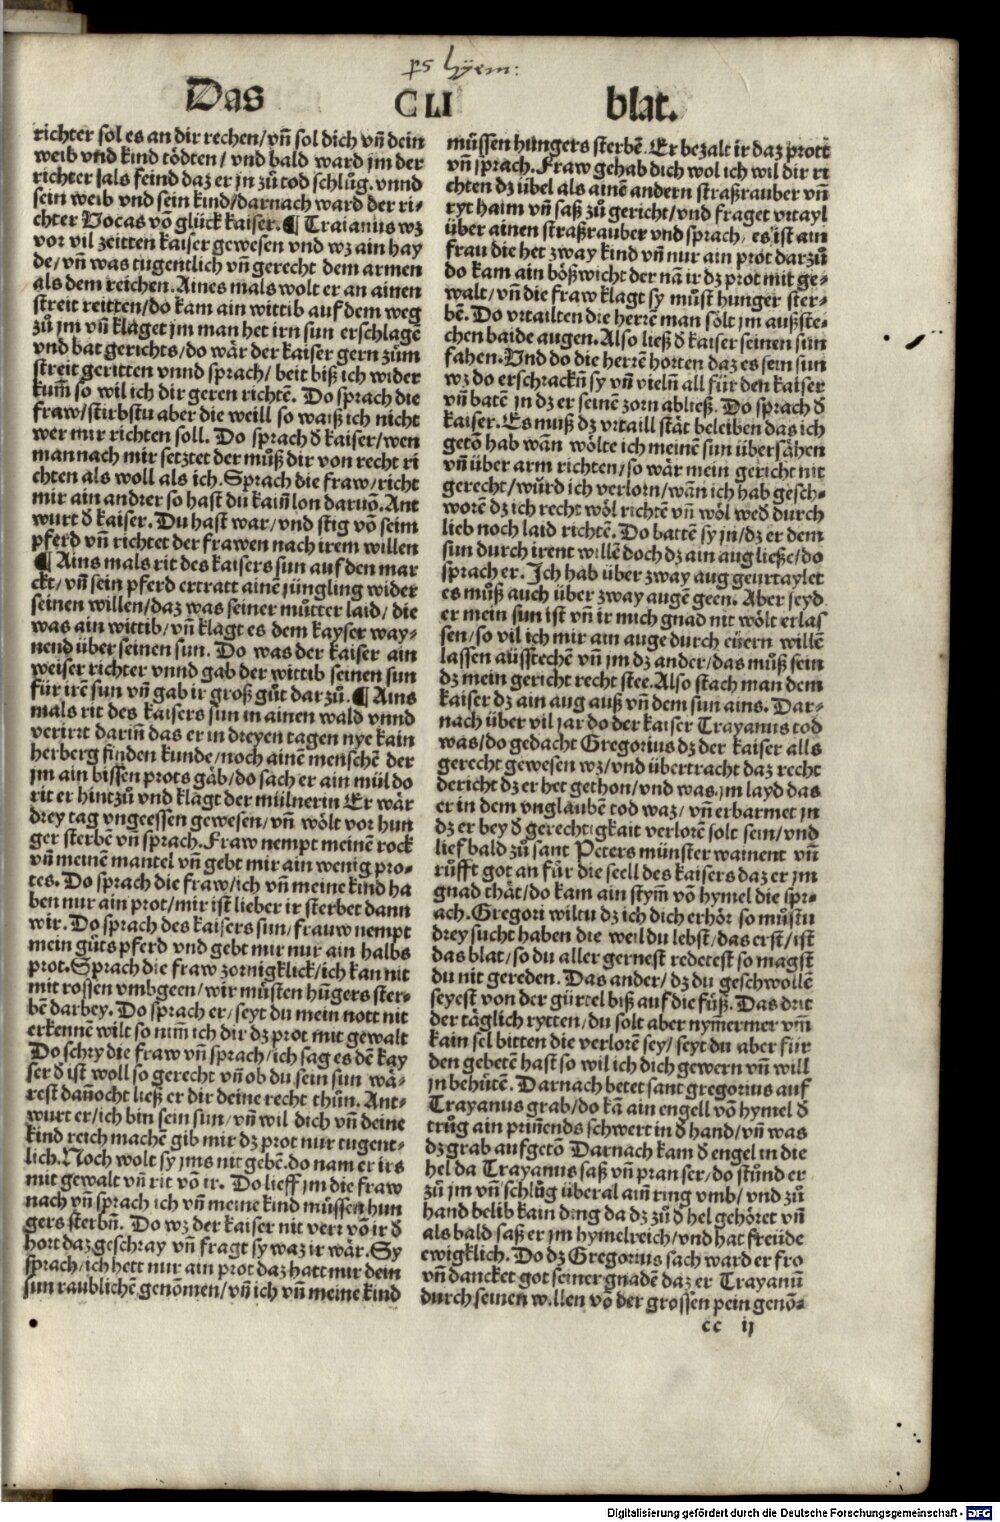 ps hyem:
Das CLI blat.
richter sol es an dir rechen/ vñ sol dich vñ dein
weib vnd kind tödten/ vnd bald ward jm der
richter als feind daz er jn zů tod schlůg. vnnd
sein weib vnd sein kind/ darnach ward der ri⸗
chter Vocas võ glück kaiser. ¶ Traianus wz
vor vil zeitten kaiser gewesen vnd wz ain hay
de/ vñ was tugentlich vñ gerecht dem armen
als dem reichen. Aines mals wolt er an ainen
streit reitten/ do kam ain wittib auf dem weg
zů jm vñ klaget jm man het irn sun erschlagẽ
vnd bat gerichts/ do wär der kaiser gern zům
streit geritten vnnd sprach/ beit biß ich wider
kum̃ so wil ich dir geren richtẽ. Do sprach die
fraw/ stirbstu aber die weill so waiß ich nicht
wer mir richten soll. Do sprach d̕ kaiser/ wen
man nach mir setztet der můß dir von recht ri
chten als woll als ich. Sprach die fraw/ richt
mir ain andrer so hast du kain̄ lon daruõ. Ant
wurt d̕ kaiser. Du hast war/ vnd stig võ seim
pferd vñ richtet der frawen nach irem willen
¶ Ains mals rit des kaisers sun auf den mar
ckt/ vñ sein pferd ertratt ainẽ jüngling wider
seinen willen/ daz was seiner můtter laid/ die
was ain wittib/ vñ klagt es dem kayser way⸗
nend über seinen sun. Do was der kaiser ain
weiser richter vnnd gab der wittib seinen sun
für irẽ sun vñ gab ir groß gůt dar zů. ¶ Ains
mals rit des kaisers sun in ainen wald vnnd
verirrt darin̄ das er in dreyen tagen nye kain
herberg finden kunde/ noch ainẽ menschẽ der
jm ain bissen prots gäb/ do sach er ain mül do
rit er hintzů vnd klagt der mülnerin Er wär
drey tag vngeessen gewesen/ vñ wölt vor hun
ger sterbẽ vñ sprach. Fraw nempt meinẽ rock
vñ meinẽ mantel vñ gebt mir ain wenig pro⸗
tes. Do sprach die fraw/ ich vñ meine kind ha
ben nur ain prot/ mir ist lieber ir sterbet dann
wir. Do sprach des kaisers sun/ frauw nempt
mein gůts pferd vnd gebt mir nur ain halbs
prot. Sprach die fraw zornigklick/ ich kan nit
mit rossen vmbgeen/ wir můsten hũgers ster⸗
bẽ darbey. Do sprach er/ seyt du mein nott nit
erkennẽ wilt so nim̃ ich dir dz prot mit gewalt
Do schry die fraw vñ sprach/ ich sag es dẽ kay
ser d̕ ist woll so gerecht vñ ob du sein sun wä⸗
rest dañocht ließ er dir deine recht thůn. Ant⸗
wurt er/ ich bin sein sun/ vñ wil dich vñ deine
kind reich machẽ gib mir dz prot nur tugent⸗
lich. Noch wolt sy jms nit gebẽ. do nam er irs
mit gewalt vñ rit võ ir. Do lieff jm die fraw
nach vñ sprach ich vñ meine kind müssen hun
gers sterbñ. Do wz der kaiser nit verr võ ir d̕
hort daz geschray vñ fragt sy waz ir wär. Sy
sprach/ ich hett nur ain prot daz hatt mir dein
sun raublichẽ genõmen/ vñ ich vñ meine kind
müssen hungers sterbẽ. Er bezalt ir daz prott
vñ sprach. Fraw gehab dich wol ich wil dir ri
chten dz übel als ainẽ andern straßrauber vñ
ryt haim vñ saß zů gericht/ vnd fraget vrtayl
über ainen straßrauber vnd sprach/ es ist ain
frau die het zway kind vñ nur ain prot darzů
do kam ain bößwicht der nã ir dz prot mit ge⸗
walt/ vñ die fraw klagt sy můst hunger ster⸗
bẽ. Do vrtailten die herrẽ man sölt jm außste⸗
chen baide augen. Also ließ d̕ kaiser seinen sun
fahen. Vnd do die herrẽ horten daz es sein sun
wz do erschrackñ sy vñ vielñ all für den kaiser
vñ batẽ jn dz er seinẽ zorn abließ. Do sprach d̕
kaiser. Es muß dz vrtaill stät beleiben das ich
getõ hab wãn wölte ich meinẽ sun übersähen
vñ über arm richten/ so wär mein gericht nit
gerecht/ würd ich verlorn/ wãn ich hab gesch⸗
worẽ dz ich recht wöl richtẽ vñ wöl wed̕ durch
lieb noch laid richtẽ. Do battẽ sy jn/ dz er dem
sun durch irent willẽ doch dz ain aug ließe/ do
sprach er. Ich hab über zway aug geurtaylet
es můß auch über zway augẽ geen. Aber seyd
er mein sun ist vñ ir mich gnad nit wölt erlas
sen/ so vil ich mir ain auge durch eüern willẽ
lassen aüsstechẽ vñ jm dz ander/ das můß sein
dz mein gericht recht stee. Also stach man dem
kaiser dz ain aug auß vñ dem sun ains. Dar⸗
nach über vil jar do der kaiser Trayanus tod
was/ do gedacht Gregorius dz der kaiser alls
gerecht gewesen wz/ vnd übertracht daz recht
dericht dz er het gethon/ vnd was jm layd das
er in dem vnglaubẽ tod waz/ vñ erbarmet jn
dz er bey d̕ gerechtigkait verlorẽ solt sein/ vnd
lief bald zů sant Peters münster wainent vñ
růfft got an für die seell des kaisers daz er jm
gnad thät/ do kam ain stym̃ võ hymel die spr⸗
ach. Gregori wiltu dz ich dich erhör so můstu
drey sucht haben die weil du lebst/ das erst/ ist
das blat/ so du aller gernest redetest so magst
du nit gereden. Das ander/ dz du geschwollẽ
seyest von der gürtel biß auf die füß. Das drit
der täglich rytten/ du solt aber nymermer vm̃
kain sel bitten die verlorẽ sey/ seyt du aber für
den gebetẽ hast so wil ich dich gewern vñ will
jn behütẽ. Darnach betet sant gregorius auf
Trayanus grab/ do kã ain engell võ hymel d̕
trůg ain prin̄ends schwert in d̕ hand/ vñ was
dz grab aufgetõ Darnach kam d̕ engel in die
hel da Trayanus saß vñ pran ser/ do stůnd er
zů jm vñ schlůg überal ain̄ ring vmb/ vnd zů
hand belib kain ding da dz zů d̕ hel gehöret vñ
als bald saß er jm hymelreich/ vnd hat freüde
ewigklich. Do dz Gregorius sach ward er fro
vñ dancket got seiner gnadẽ daz er Trayanũ
durch seinen willen võ der grossen pein genõ⸗
cc ij
Digitalisierung gefördert durch die Deutsche Forschungsgemeinschaft - DFG